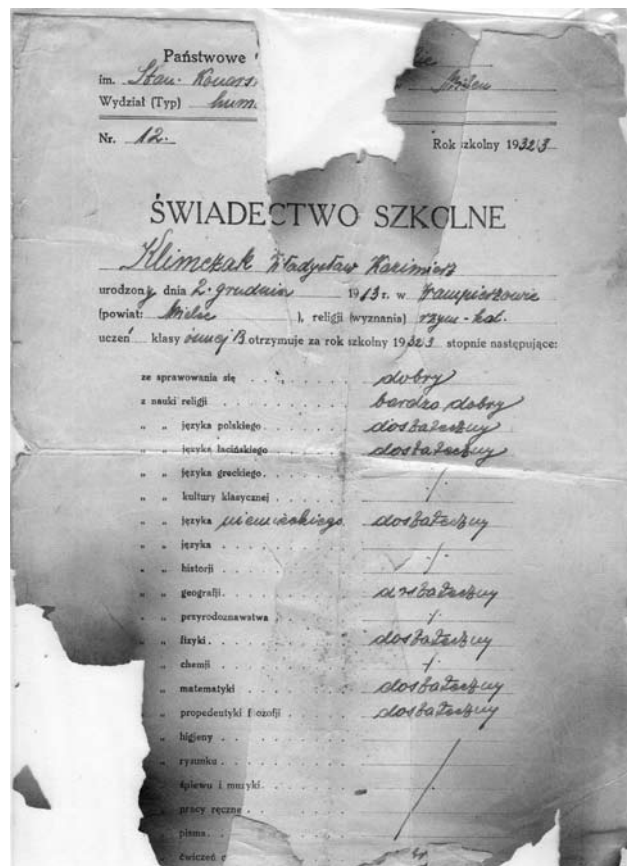 Państwowe
im. Stan. Konars
Wydział (Typ) hum.
Nr. 12. Rok szkolny 1932/3
ŚWIADECTWO SZKOLNE
Klimczak Władysław Kazimierz
urodzony dnia 2. grudnia 1913 r. w Trampierzowie
(powiat: Mielec ), religji (wyznania) rzym-kat.
uczeń klasy ósmej B otrzymuje za rok szkolny 1932/3 stopnie następujące:
ze sprawowania się . . . . . dobry
z nauki religji . . . . . bardzo dobry
" " języka polskiego . . . . . dostateczny
" " języka łacińskiego . . . . . dostateczny
" " języka greckiego . . . . . ./.
" " kultury klasycznej . . . . .
" " języka niemieckiego. dostateczny
" " języka . . . . . ./.
" " historji . . . . .
" " geografji . . . . . dostateczny
" " przyrodoznawstwa . . . . . ./.
" " fizyki . . . . . dostateczny
" " chemji . . . . . ./.
" " matematyki . . . . . dostateczny
" " propedeutyki filozofji . . . . . dostateczny
" " higjeny . . . . .
" " rysunku . . . . .
śpiewu i muzyki . . . . . /
pracy ręczne . . . . .
pisma . . . . .
ćwiczeń c